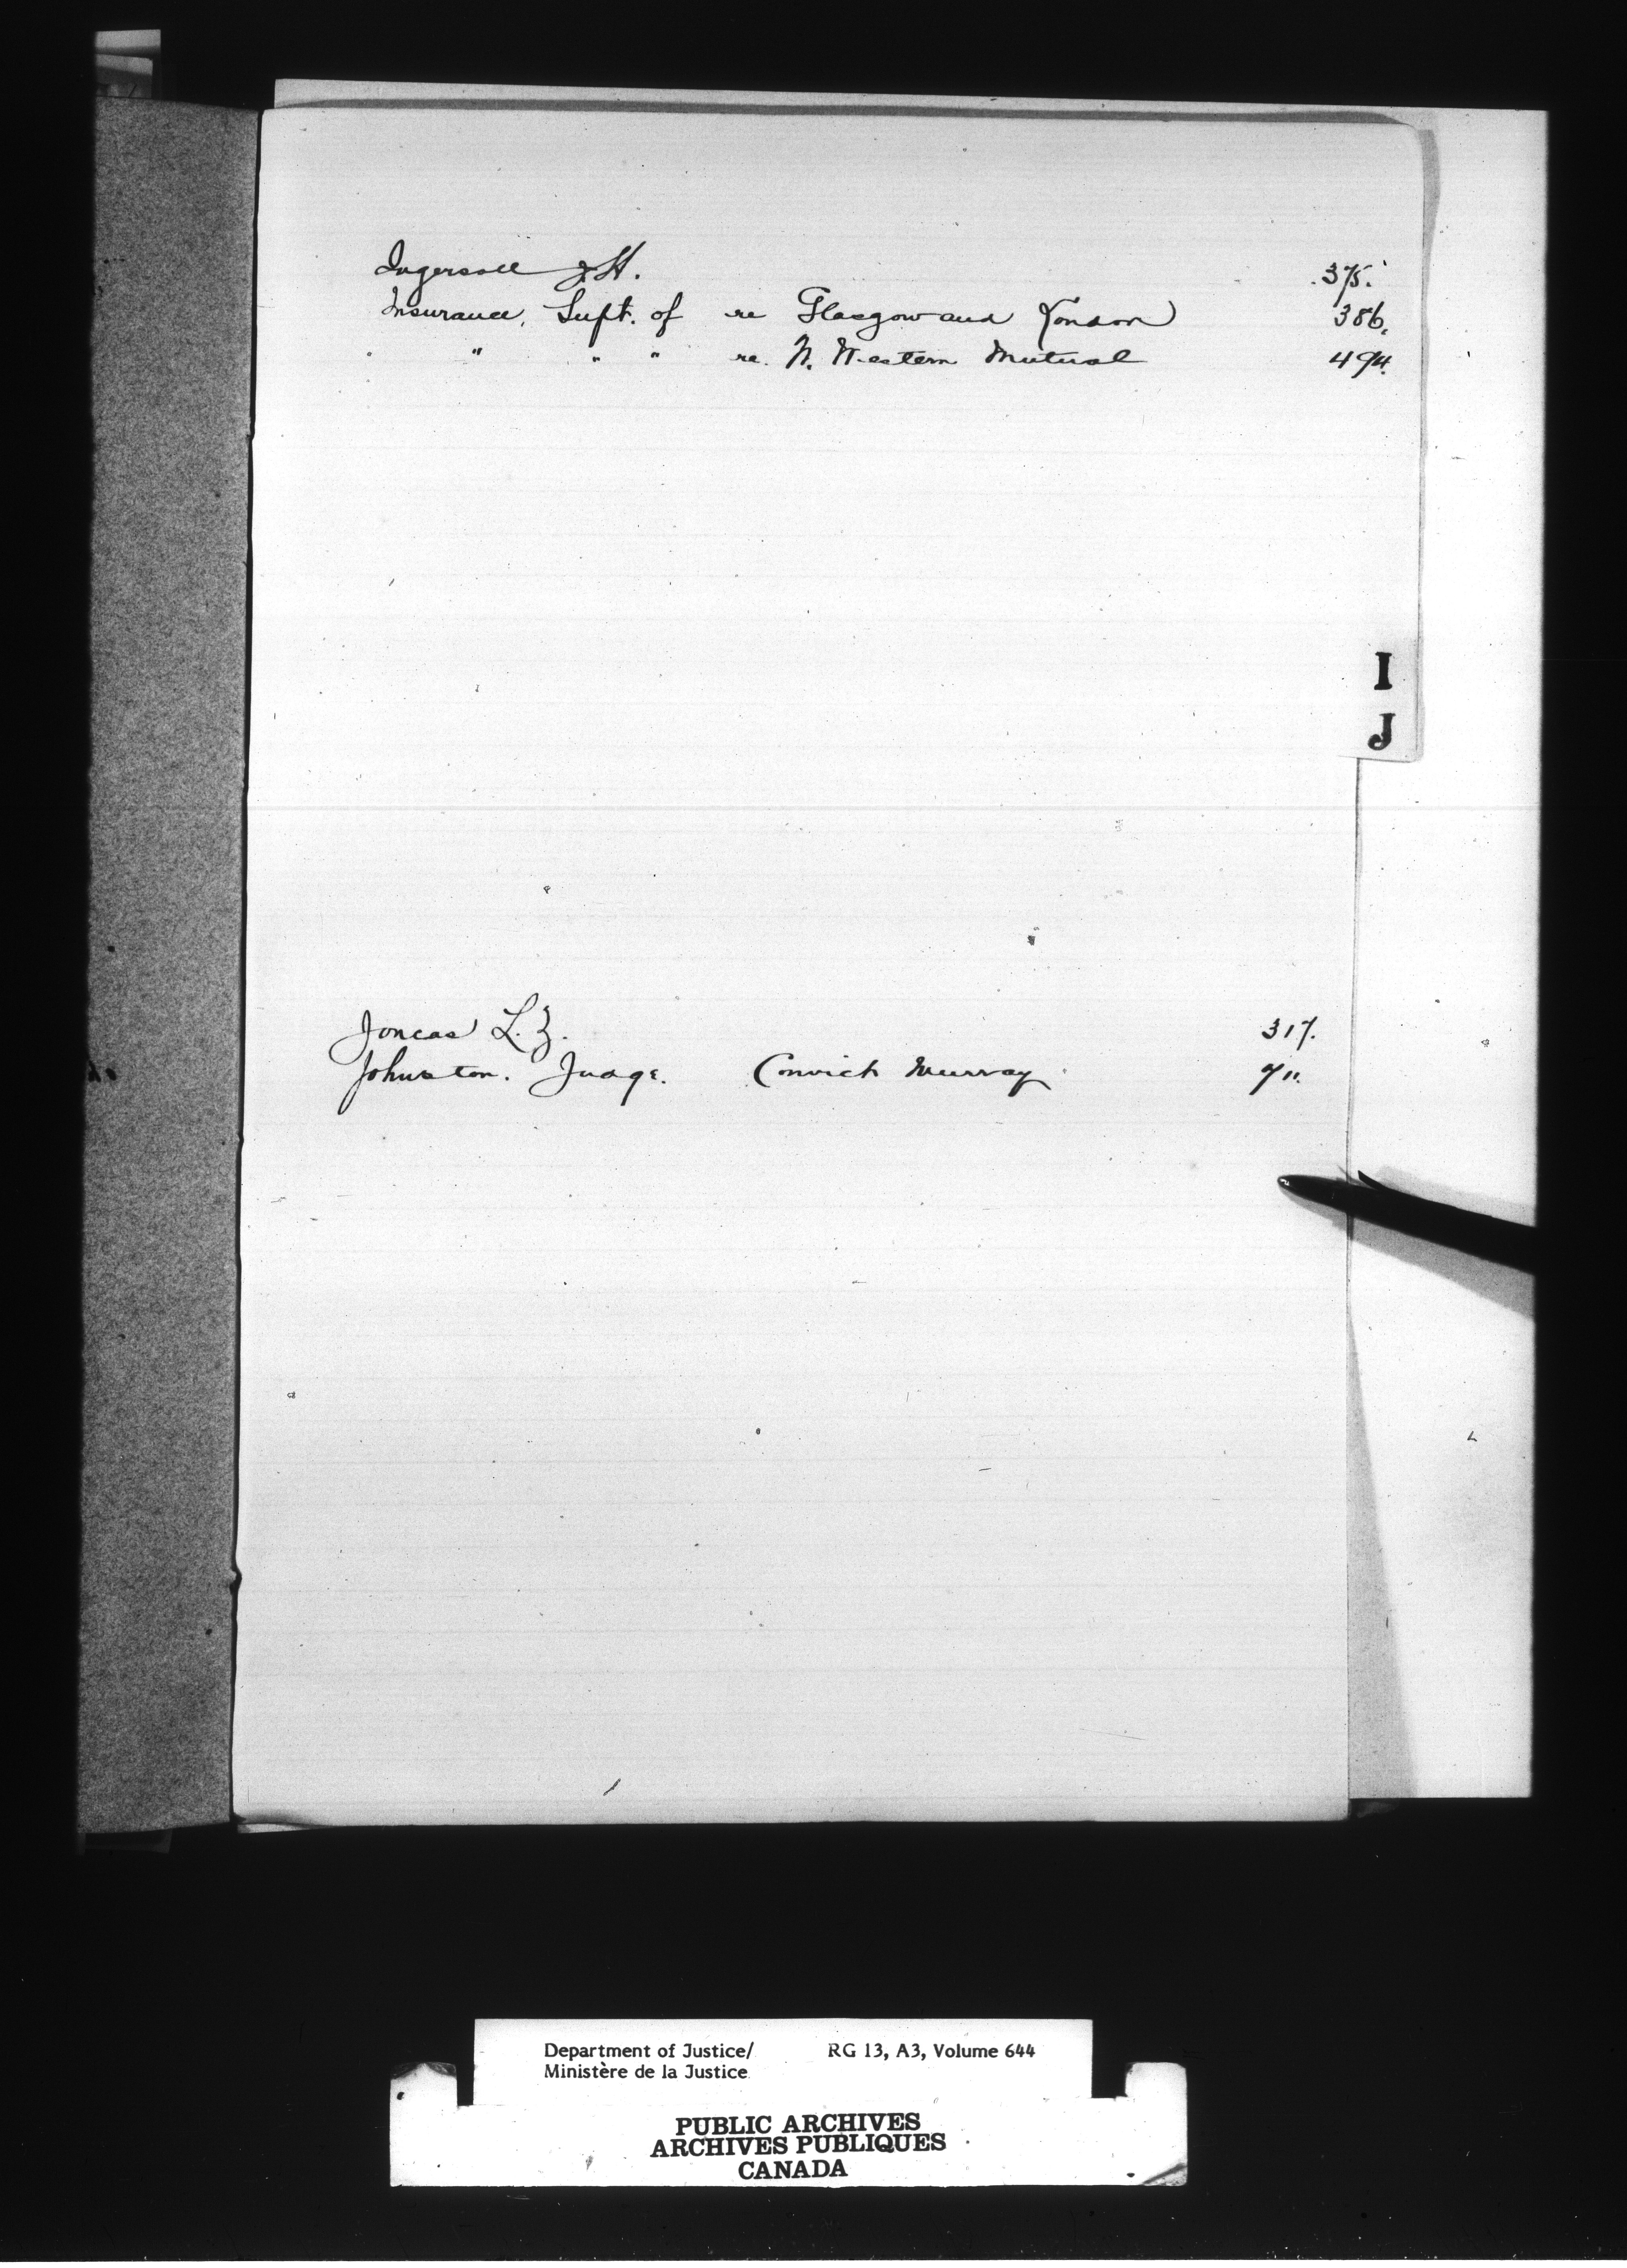 Ingersoll J. H. 375.
Insurance, Supt. of re Glasgow and London 386.
" " " re. N. Western Mutual 494.
I
J
Joncas L. Z. 317.
Johnston. Judge. Convict Murray 711.
Department of Justice/ RG 13, A3, Volume 644
Ministère de la Justice
PUBLIC ARCHIVES
ARCHIVES PUBLIQUES
CANADA